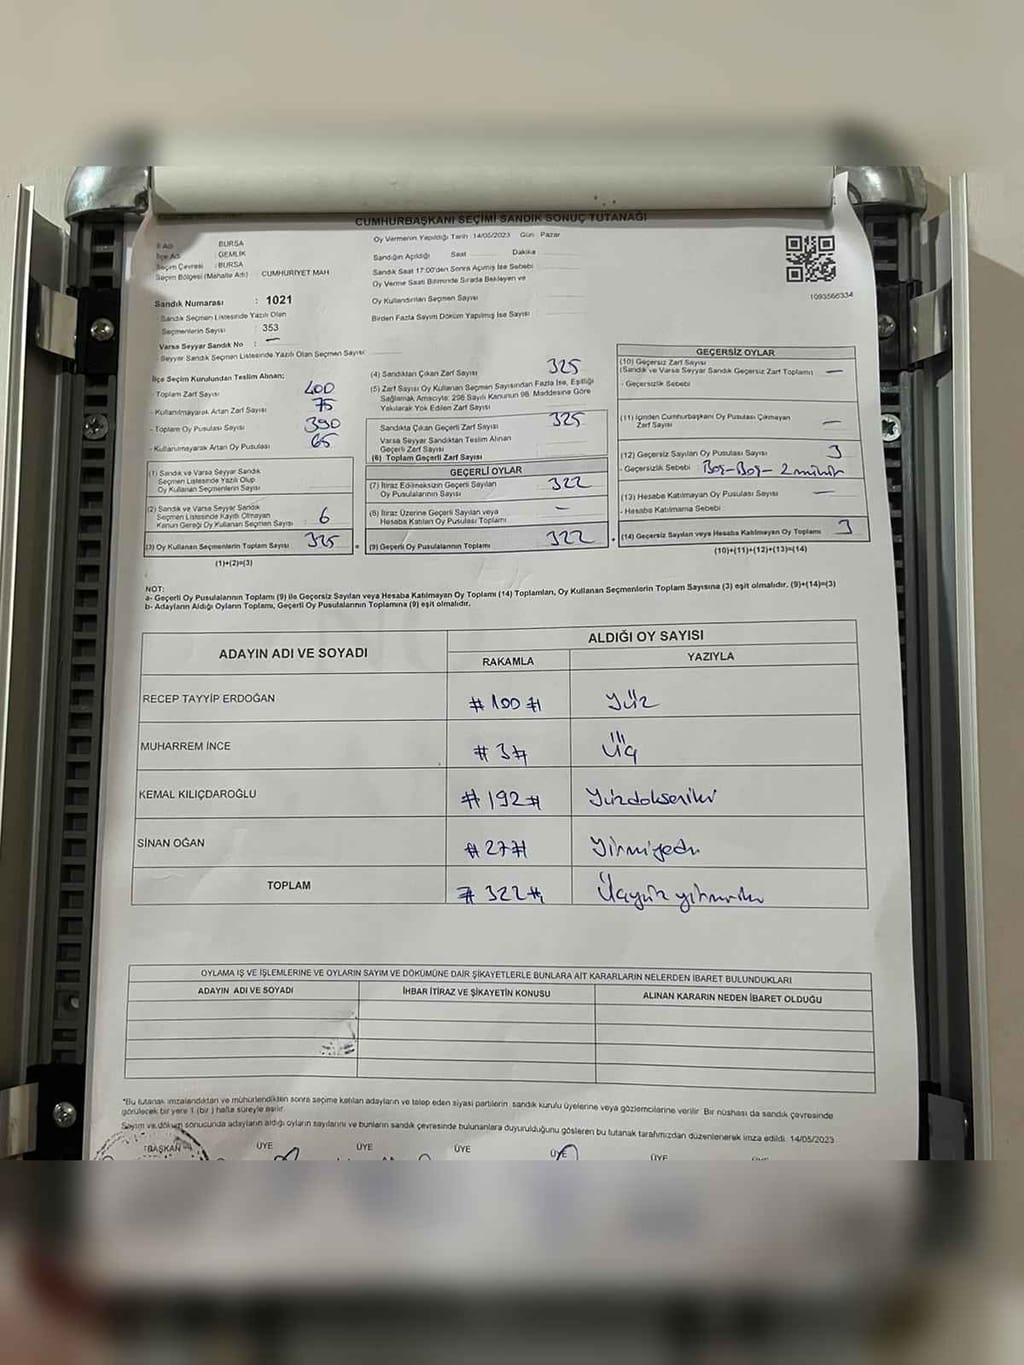 CUMHURBAŞKANI SEÇİMİ SANDIK SONUÇ TUTANAĞI
İl Adı : BURSA
İlçe Adı : GEMLİK
Seçim Çevresi : BURSA
Seçim Bölgesi (Mahalle Adı) CUMHURIYET MAH
Sandık Numarası : 1021
- Sandık Seçmen Listesinde Yazılı Olan
Seçmenlerin Sayısı : 353
Varsa Seyyar Sandık No : —
- Seyyar Sandık Seçmen Listesinde Yazılı Olan Seçmen Sayısı:
Oy Vermenin Yapıldığı Tarih : 14/05/2023 Gün : Pazar
Sandığın Açıldığı Saat Dakika
Sandık Saat 17:00'den Sonra Açılmış İse Sebebi
Oy Verme Saati Bitiminde Sırada Bekleyen ve
Oy Kullandırılan Seçmen Sayısı
Birden Fazla Sayım Döküm Yapılmış İse Sayısı
1093566334
İlçe Seçim Kurulundan Teslim Alınan;
- Toplam Zarf Sayısı : 400
- Kullanılmayarak Artan Zarf Sayısı : 75
- Toplam Oy Pusulası Sayısı : 390
- Kullanılmayarak Artan Oy Pusulası : 65
(1) Sandık ve Varsa Seyyar Sandık
Seçmen Listesinde Yazılı Olup
Oy Kullanan Seçmenlerin Sayısı
(2) Sandık ve Varsa Seyyar Sandık
Seçmen Listesinde Kayıtlı Olmayan
Kanun Gereği Oy Kullanan Seçmen Sayısı : 6
(3) Oy Kullanan Seçmenlerin Toplam Sayısı : 325
(1)+(2)=(3)
(4) Sandıktan Çıkan Zarf Sayısı : 325
(5) Zarf Sayısı Oy Kullanan Seçmen Sayısından Fazla İse, Eşitliği
Sağlamak Amacıyla; 298 Sayılı Kanunun 98. Maddesine Göre
Yakılarak Yok Edilen Zarf Sayısı
Sandıkta Çıkan Geçerli Zarf Sayısı : 325
Varsa Seyyar Sandıktan Teslim Alınan
Geçerli Zarf Sayısı
(6) Toplam Geçerli Zarf Sayısı
GEÇERLİ OYLAR
(7) İtiraz Edilmeksizin Geçerli Sayılan
Oy Pusulalarının Sayısı : 322
(8) İtiraz Üzerine Geçerli Sayılan veya
Hesaba Katılan Oy Pusulası Toplamı : —
(9) Geçerli Oy Pusulalarının Toplamı : 322
GEÇERSİZ OYLAR
(10) Geçersiz Zarf Sayısı
(Sandık ve Varsa Seyyar Sandık Geçersiz Zarf Toplamı) : —
- Geçersizlik Sebebi :
(11) İçinden Cumhurbaşkanı Oy Pusulası Çıkmayan
Zarf Sayısı : —
(12) Geçersiz Sayılan Oy Pusulası Sayısı : 3
- Geçersizlik Sebebi : Boş-Boş- 2 mühür
(13) Hesaba Katılmayan Oy Pusulası Sayısı : —
- Hesaba Katılmama Sebebi :
(14) Geçersiz Sayılan veya Hesaba Katılmayan Oy Toplamı : 3
(10)+(11)+(12)+(13)=(14)
NOT:
a- Geçerli Oy Pusulalarının Toplamı (9) ile Geçersiz Sayılan veya Hesaba Katılmayan Oy Toplamı (14) Toplamları, Oy Kullanan Seçmenlerin Toplam Sayısına (3) eşit olmalıdır. (9)+(14)=(3)
b- Adayların Aldığı Oyların Toplamı, Geçerli Oy Pusulalarının Toplamına (9) eşit olmalıdır.
ADAYIN ADI VE SOYADI
ALDIĞI OY SAYISI
RAKAMLA YAZIYLA
RECEP TAYYİP ERDOĞAN # 100 # Yüz
MUHARREM İNCE # 3 # Üç
KEMAL KILIÇDAROĞLU # 192 # Yüzdoksaniki
SİNAN OĞAN # 27 # Yirmiyedi
TOPLAM # 322 # Üçyüz yirmiiki
OYLAMA İŞ VE İŞLEMLERİNE VE OYLARIN SAYIM VE DÖKÜMÜNE DAİR ŞİKAYETLERLE BUNLARA AİT KARARLARIN NELERDEN İBARET BULUNDUKLARI
ADAYIN ADI VE SOYADI İHBAR İTİRAZ VE ŞİKAYETİN KONUSU ALINAN KARARIN NEDEN İBARET OLDUĞU
*Bu tutanak imzalandıktan ve mühürlendikten sonra seçime katılan adayların ve talep eden siyasi partilerin sandık kurulu üyelerine veya gözlemcilerine verilir. Bir nüshası da sandık çevresinde
görülecek bir yere 1 (bir ) hafta süreyle asılır.
Sayım ve döküm sonucunda adayların aldığı oyların sayılarını ve bunların sandık çevresinde bulunanlara duyurulduğunu gösteren bu tutanak tarafımızdan düzenlenerek imza edildi. 14/05/2023
BAŞKAN ÜYE ÜYE ÜYE ÜYE ÜYE